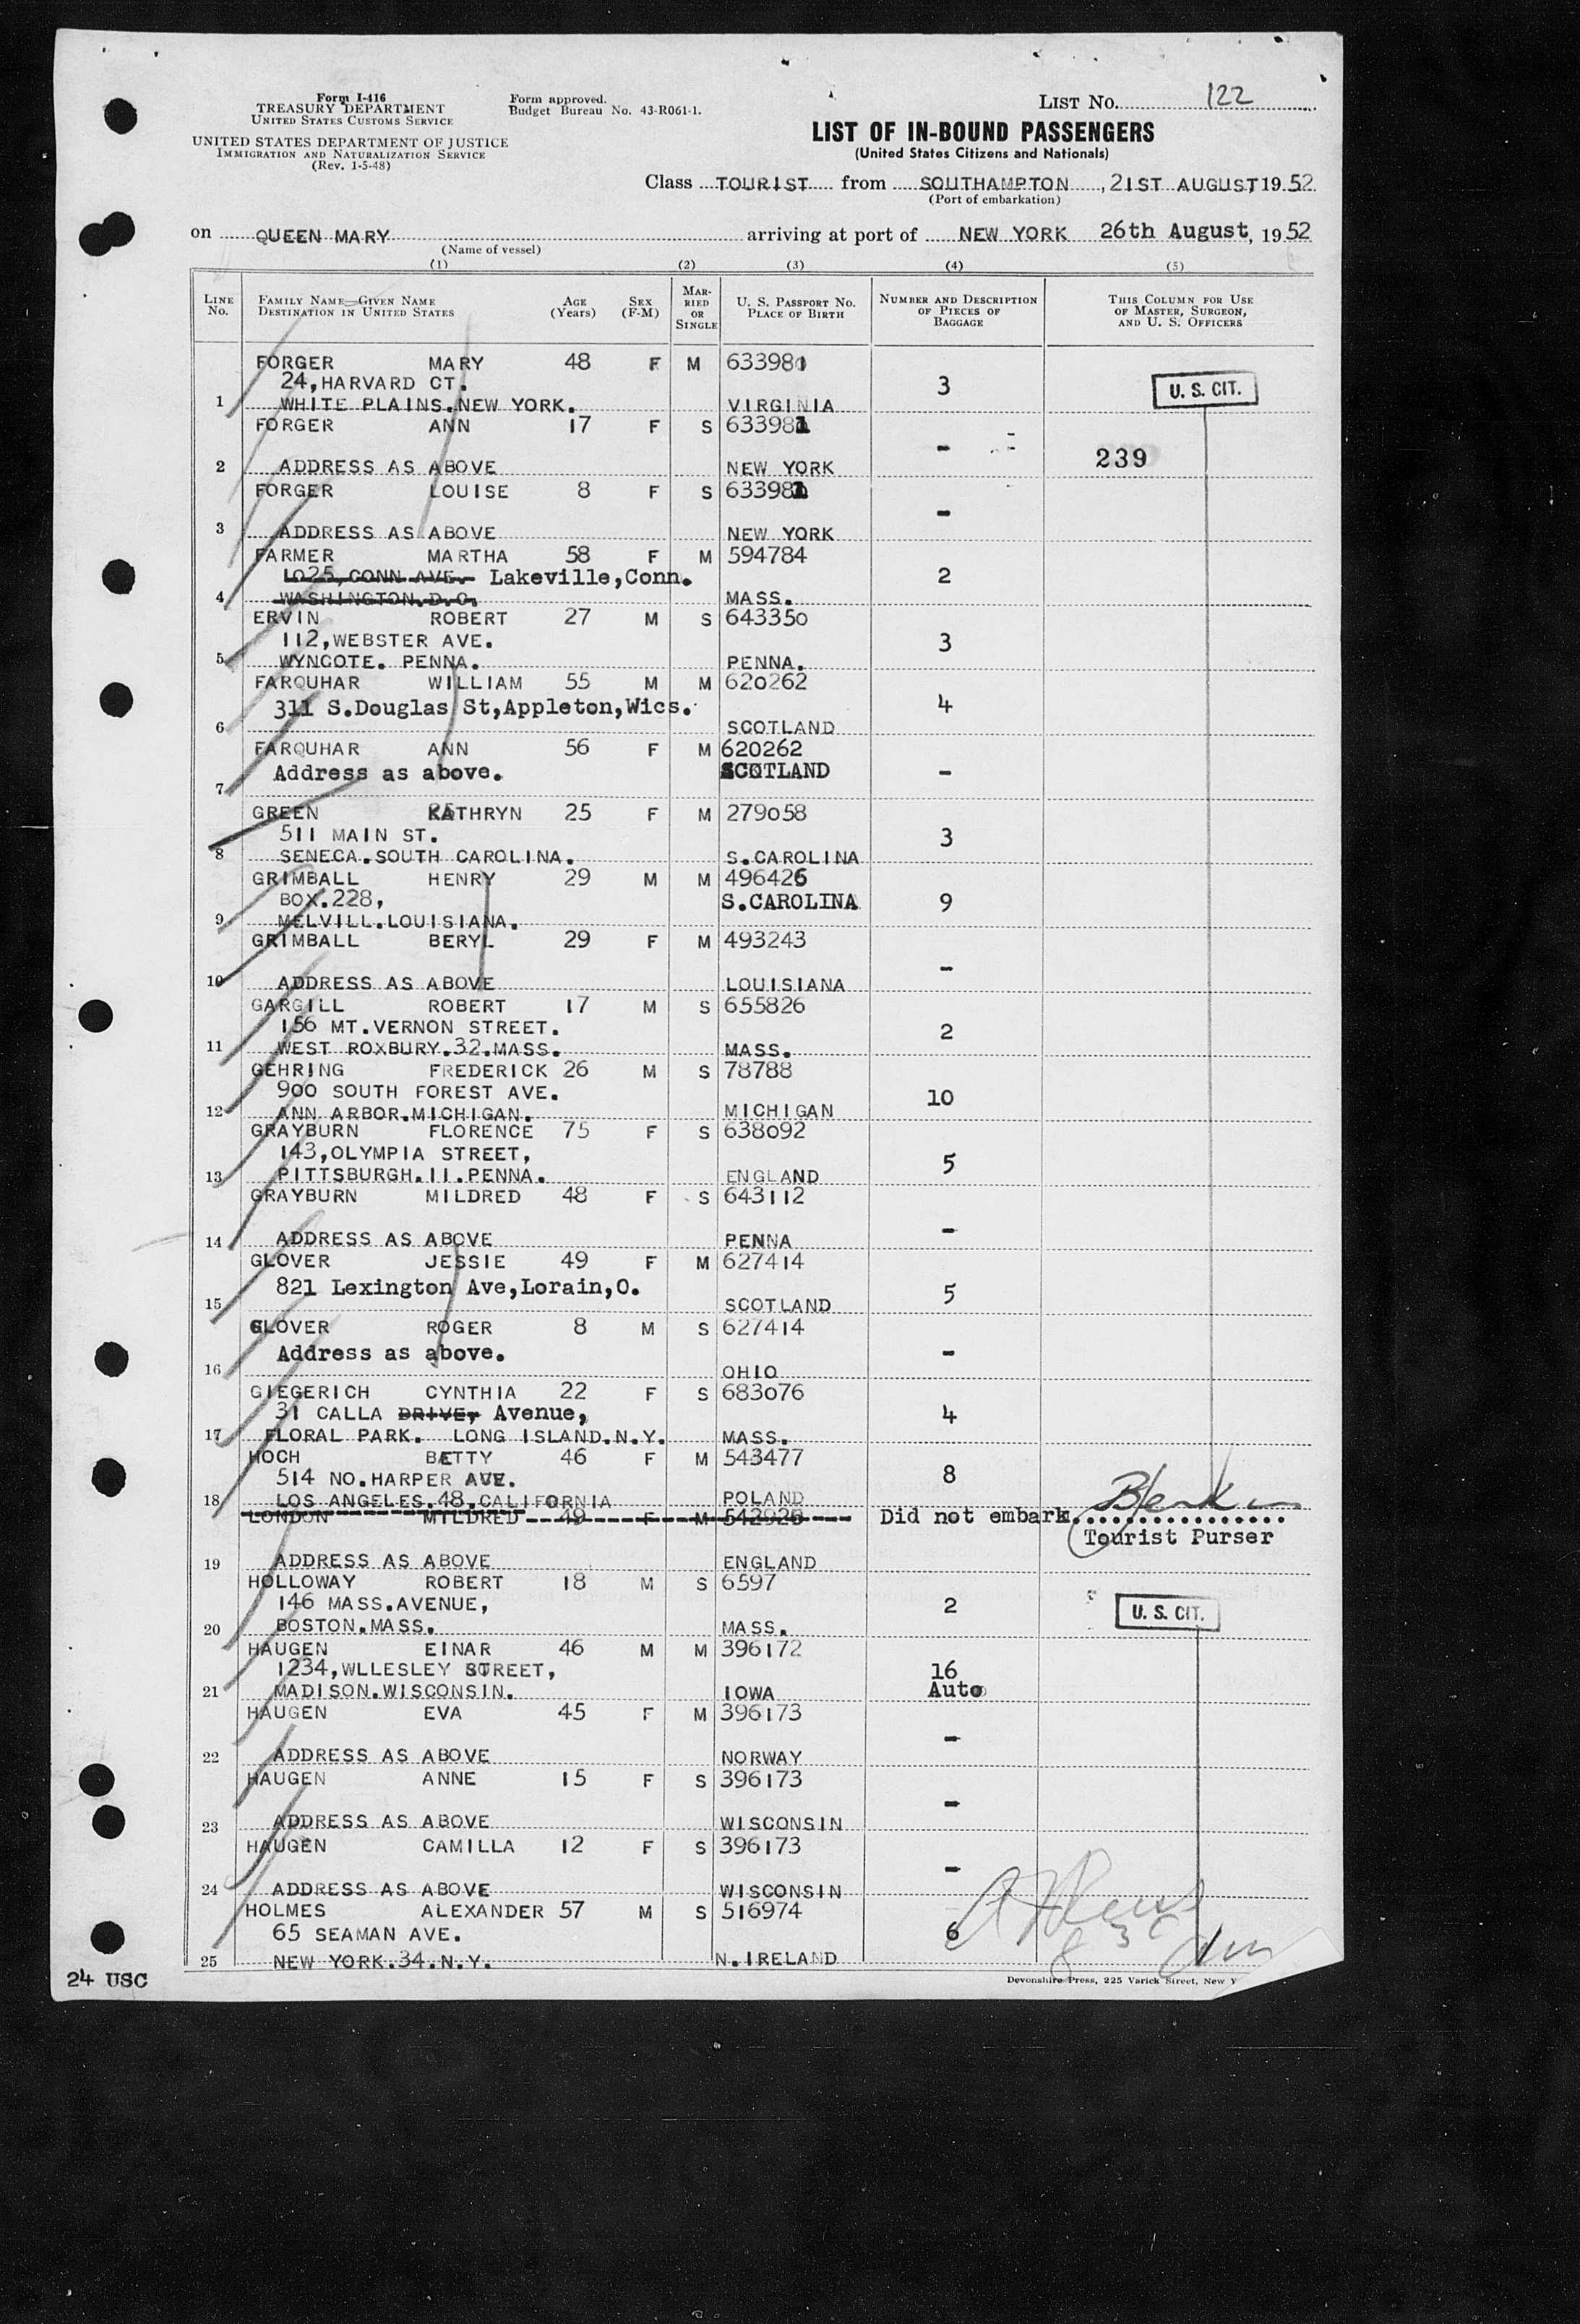 Form I-416
TREASURY DEPARTMENT
UNITED STATES CUSTOMS SERVICE
UNITED STATES DEPARTMENT OF JUSTICE
IMMIGRATION AND NATURALIZATION SERVICE
(Rev. 1-5-48)
Form approved.
Budget Bureau No. 43-R061-1.
LIST NO. 122
LIST OF IN-BOUND PASSENGERS
(United States Citizens and Nationals)
Class TOURIST from SOUTHAMPTON, 21ST AUGUST, 1952
(Port of embarkation)
on QUEEN MARY arriving at port of NEW YORK 26th August, 1952
(Name of vessel)
(1) (2) (3) (4) (5)
LINE NO. FAMILY NAME—GIVEN NAME DESTINATION IN UNITED STATES AGE (Years) SEX (F-M) MARRIED OR SINGLE U. S. PASSPORT NO. PLACE OF BIRTH NUMBER AND DESCRIPTION OF PIECES OF BAGGAGE THIS COLUMN FOR USE OF MASTER, SURGEON, AND U. S. OFFICERS
FORGER MARY 48 F M 633981
24,HARVARD CT. 3 U. S. CIT.
1 WHITE PLAINS.NEW YORK. VIRGINIA
FORGER ANN 17 F S 633981
- 239
2 ADDRESS AS ABOVE NEW YORK
FORGER LOUISE 8 F S 633981
-
3 ADDRESS AS ABOVE NEW YORK
FARMER MARTHA 58 F M 594784
1025,CONN AVE. Lakeville,Conn. 2
4 WASHINGTON.D.C. MASS.
ERVIN ROBERT 27 M S 643350
112,WEBSTER AVE. 3
5 WYNCOTE. PENNA. PENNA.
FARQUHAR WILLIAM 55 M M 620262
311 S.Douglas St,Appleton,Wics. 4
6 SCOTLAND
FARQUHAR ANN 56 F M 620262
Address as above. SCOTLAND -
7
GREEN KATHRYN 25 F M 279058
511 MAIN ST. 3
8 SENECA.SOUTH CAROLINA. S.CAROLINA
GRIMBALL HENRY 29 M M 496426
BOX.228, S.CAROLINA 9
9 MELVILL.LOUISIANA.
GRIMBALL BERYL 29 F M 493243
-
10 ADDRESS AS ABOVE LOUISIANA
GARGILL ROBERT 17 M S 655826
156 MT.VERNON STREET. 2
11 WEST ROXBURY.32.MASS. MASS.
GEHRING FREDERICK 26 M S 78788
900 SOUTH FOREST AVE. 10
12 ANN ARBOR.MICHIGAN. MICHIGAN
GRAYBURN FLORENCE 75 F S 638092
143,OLYMPIA STREET, 5
13 PITTSBURGH.11.PENNA. ENGLAND
GRAYBURN MILDRED 48 F S 643112
-
14 ADDRESS AS ABOVE PENNA
GLOVER JESSIE 49 F M 627414
821 Lexington Ave,Lorain,O. 5
15 SCOTLAND
GLOVER ROGER 8 M S 627414
Address as above. -
16 OHIO
GIEGERICH CYNTHIA 22 F S 683076
31 CALLA DRIVE, Avenue, 4
17 FLORAL PARK. LONG ISLAND.N.Y. MASS.
HOCH BETTY 46 F M 543477
514 NO.HARPER AVE. 8
18 LOS ANGELES.48.CALIFORNIA POLAND
LONDON MILDRED 49 F M 542926 Did not embark.
Tourist Purser
19 ADDRESS AS ABOVE ENGLAND
HOLLOWAY ROBERT 18 M S 6597
146 MASS.AVENUE, 2 U. S. CIT.
20 BOSTON.MASS. MASS.
HAUGEN EINAR 46 M M 396172
1234,WLLESLEY STREET, 16
21 MADISON.WISCONSIN. IOWA Auto
HAUGEN EVA 45 F M 396173
-
22 ADDRESS AS ABOVE NORWAY
HAUGEN ANNE 15 F S 396173
-
23 ADDRESS AS ABOVE WISCONSIN
HAUGEN CAMILLA 12 F S 396173
-
24 ADDRESS AS ABOVE WISCONSIN
HOLMES ALEXANDER 57 M S 516974
65 SEAMAN AVE. 6
25 NEW YORK.34.N.Y. N.IRELAND
24 USC
Devonshire Press, 225 Varick Street, New Y